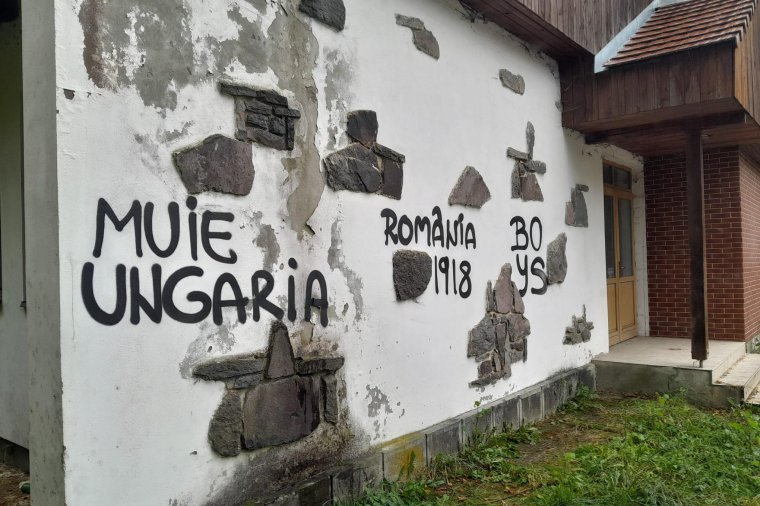 MUIE
UNGARIA
ROMÂNIA
1918
BO
YS